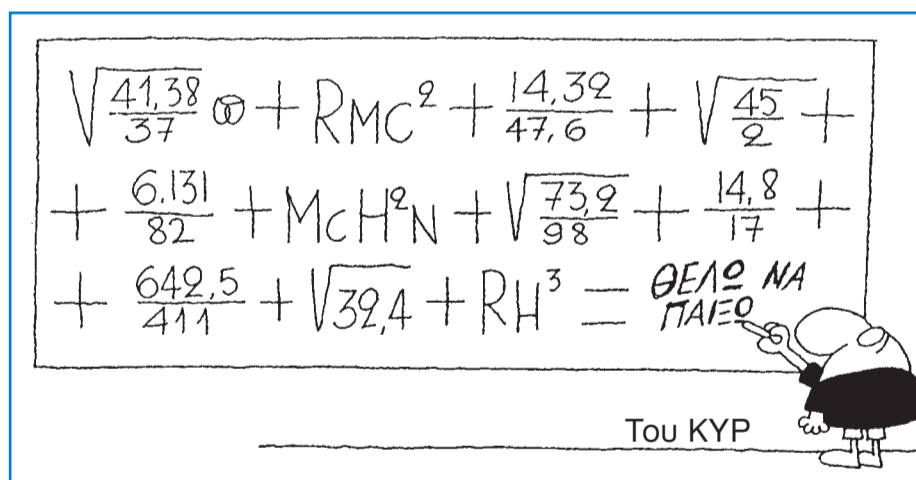 √41,38/37 ⊚ + RMC² + 14,32/47,6 + √45/2 +
+ 6.131/82 + MCH²N + √73,2/98 + 14,8/17 +
+ 642,5/411 + √32,4 + RH³ = ΘΕΛΩ ΝΑ
ΠΑΙΞΩ
Του ΚΥΡ